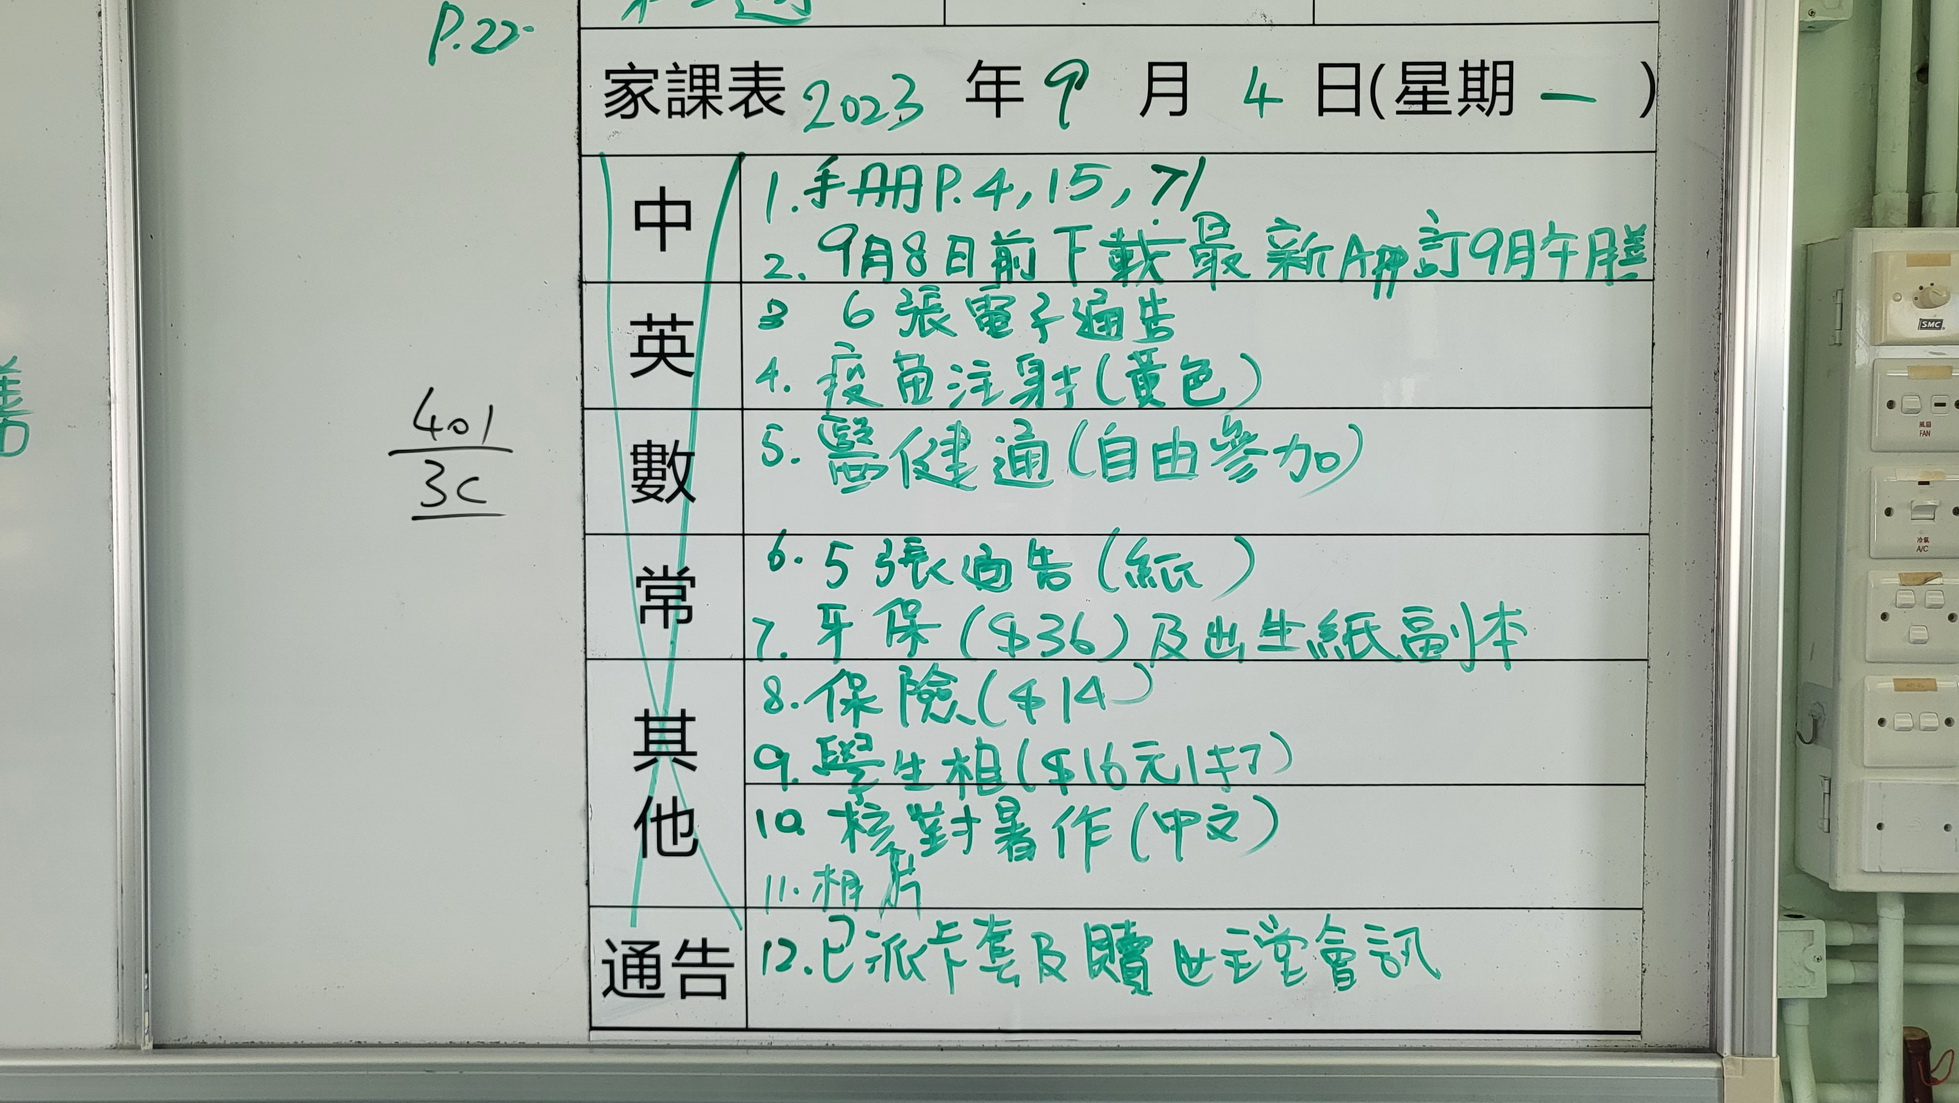 P.22
家課表 2023 年 9 月 4 日(星期 一 )
中
1. 手冊P.4, 15, 71
2. 9月8日前下載最新App訂9月午膳
英
3 6張電子通告
4. 疫苗注射(黃色)
數
5. 醫健通(自由參加)
401
3C
常
6. 5張通告(紙)
7. 牙保($36)及出生紙副本
其他
8. 保險($14)
9. 學生相($16元1打)
10. 核對暑作(中文)
11. 相片
通告
12. 已派卡套及贖世主堂會訊
SMC
風扇
FAN
冷氣
A/C